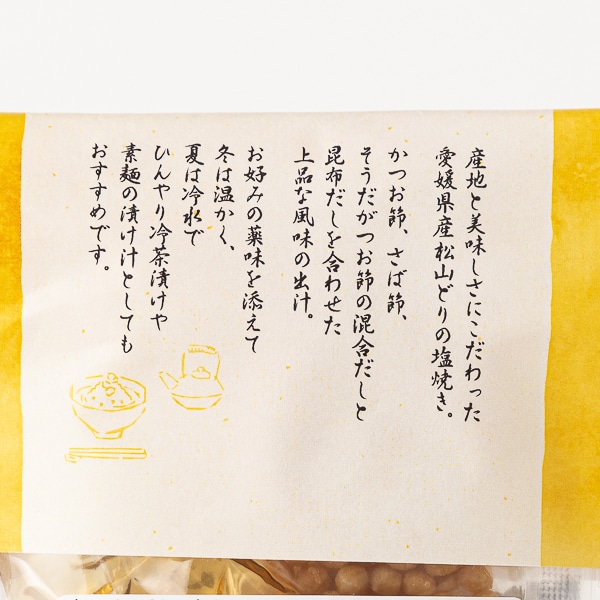 産地と美味しさにこだわった
愛媛県産松山どりの塩焼き。
かつお節、さば節、
そうだがつお節の混合だしと
昆布だしを合わせた
上品な風味の出汁。
お好みの薬味を添えて
冬は温かく、
夏は冷水で
ひんやり冷茶漬けや
素麺の漬け汁としても
おすすめです。